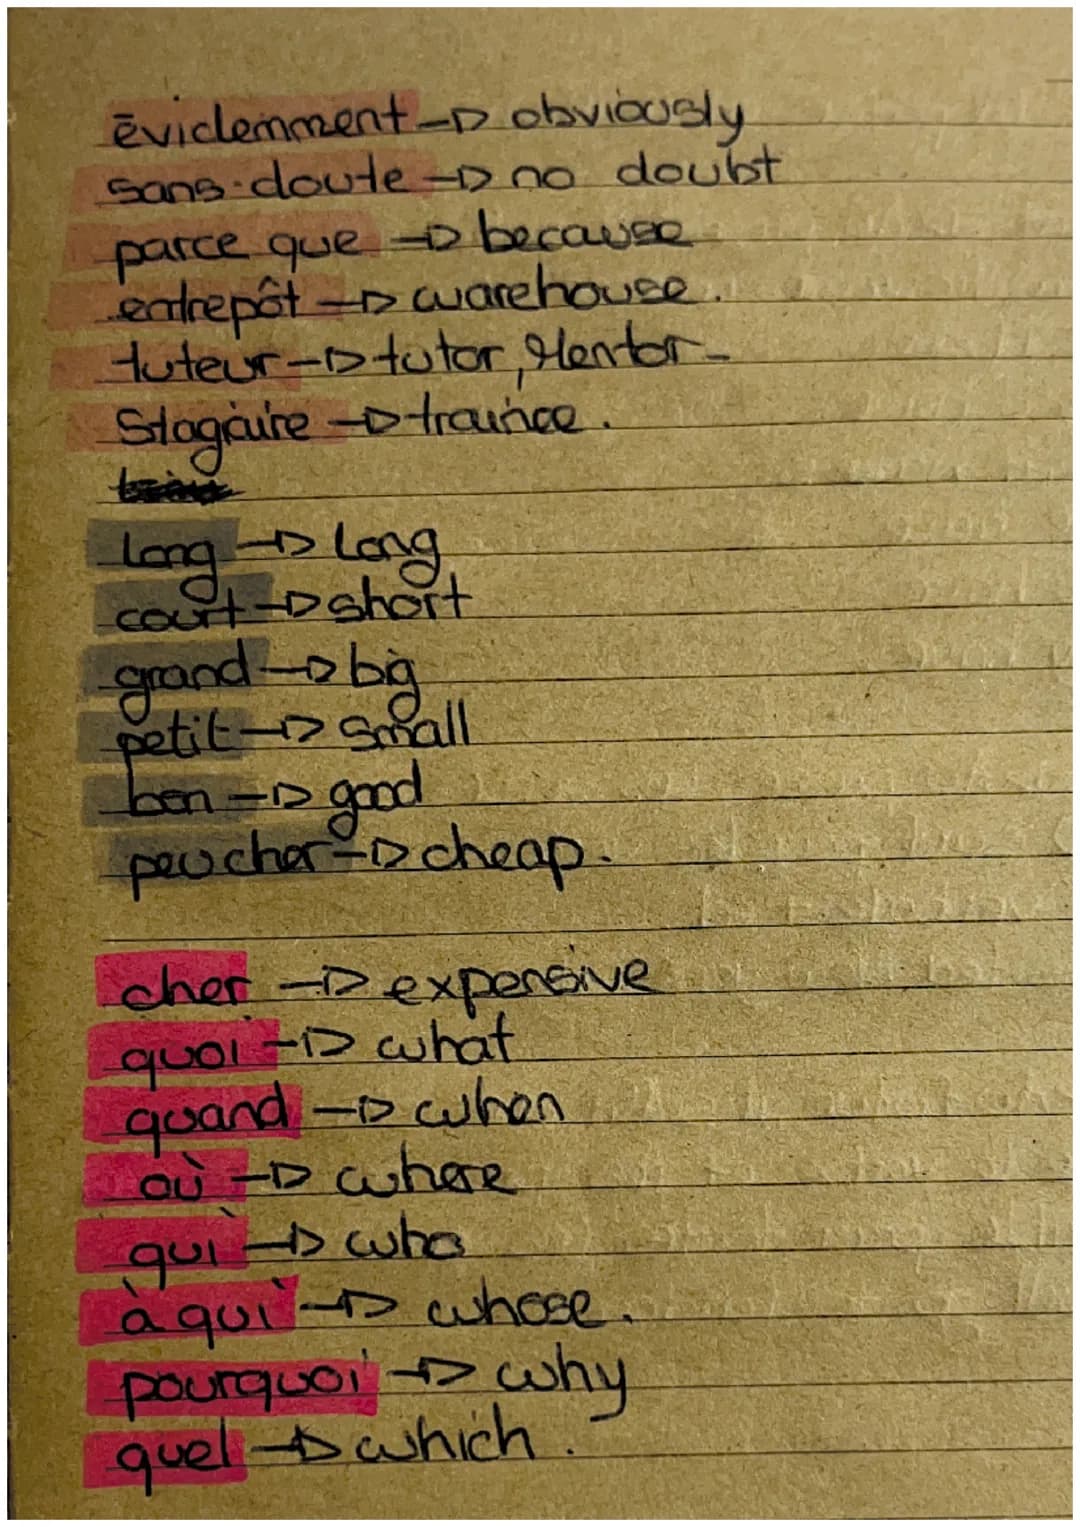 évidemment → obviously
sans-doute → no doubt
parce que → because
entrepôt → warehouse.
tuteur → tutor, Mentor
Stagiaire → trainee.
long → long
court → short
grand → big
petit → small
bon → good
peu cher → cheap.
cher → expensive
quoi → what
quand → when
où → where
qui → who
à qui → whose.
pourquoi → why
quel → which.